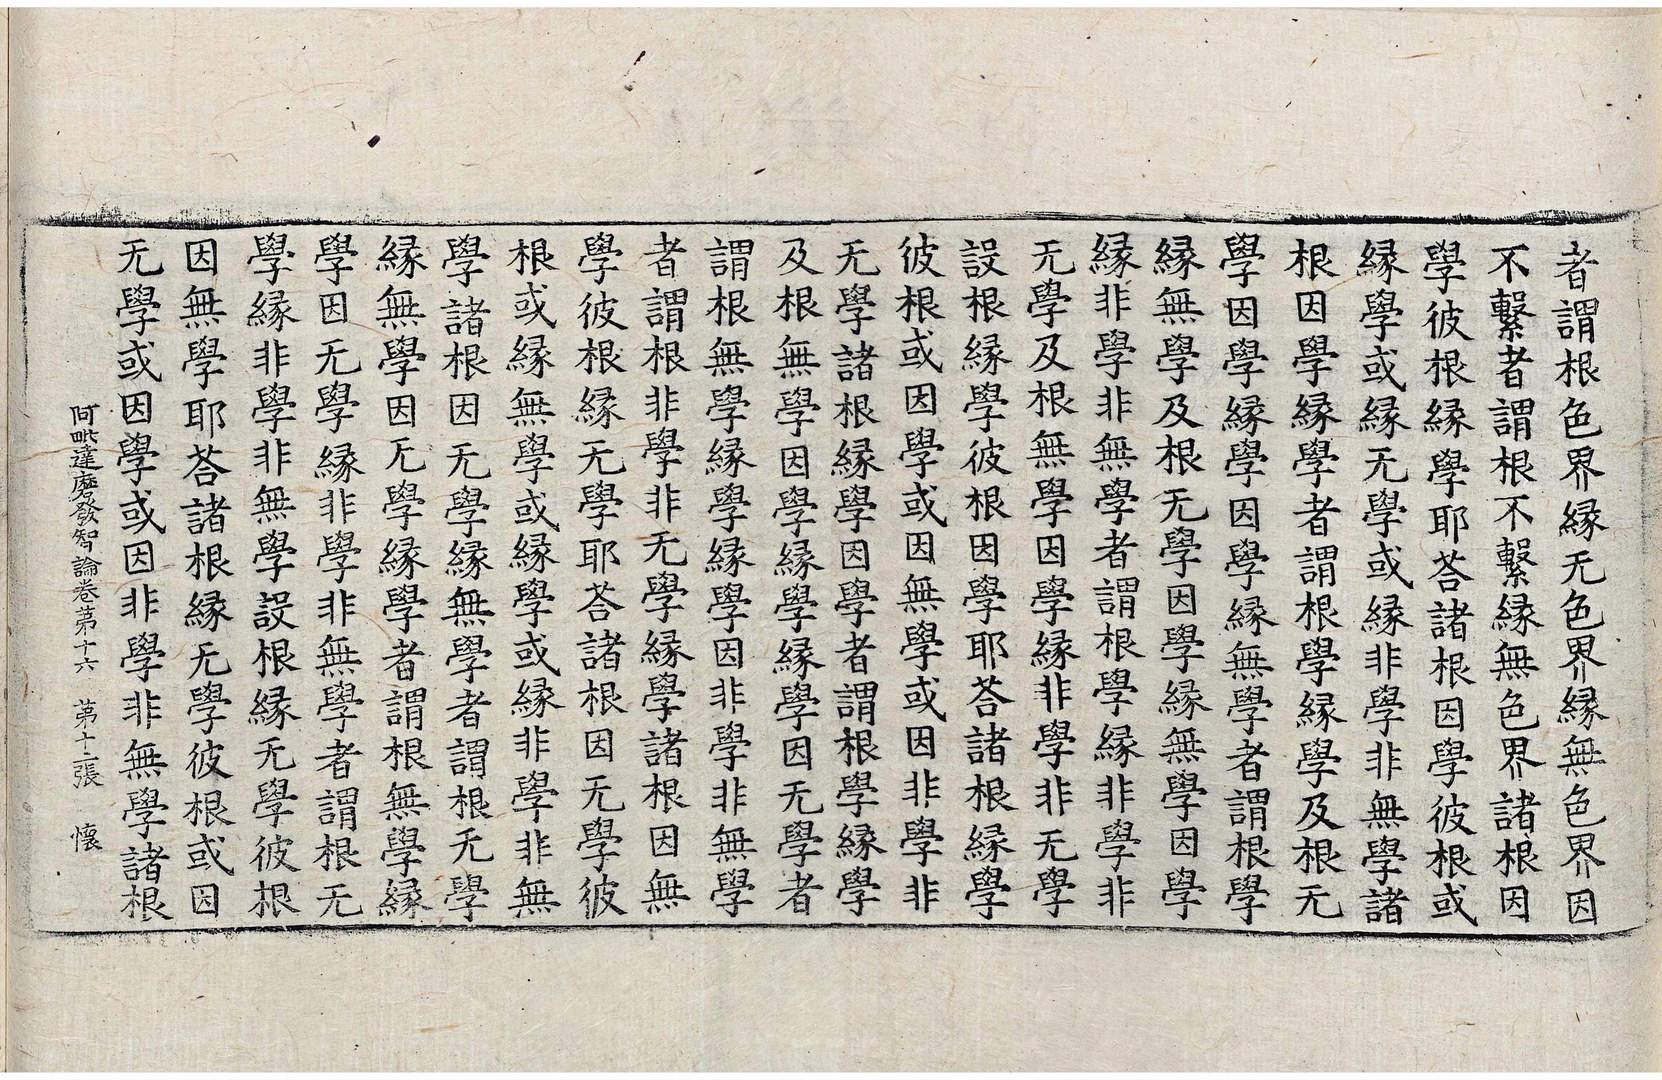 者謂根色界縁无色界縁無色界因
不繫者謂根不繫縁無色界諸根因
學彼根縁學耶荅諸根因學彼根或
縁學或縁无學或縁非學非無學諸
根因學縁學者謂根學縁學及根无
學因學縁學因學縁無學者謂根學
縁無學及根无學因學縁無學因學
縁非學非無學者謂根學縁非學非
无學及根無學因學縁非學非无學
設根縁學彼根因學耶荅諸根縁學
彼根或因學或因無學或因非學非
无學諸根縁學因學者謂根學縁學
及根無學因學縁學縁學因无學者
謂根無學縁學縁學因非學非無學
者謂根非學非无學縁學諸根因無
學彼根縁无學耶荅諸根因无學彼
根或縁無學或縁學或縁非學非無
學諸根因无學縁無學者謂根无學
縁無學因无學縁學者謂根無學縁
學因无學縁非學非無學者謂根无
學縁非學非無學設根縁无學彼根
因無學耶荅諸根縁无學彼根或因
无學或因學或因非學非無學諸根
阿毗達磨發智論卷苐十六 苐十二張 懷